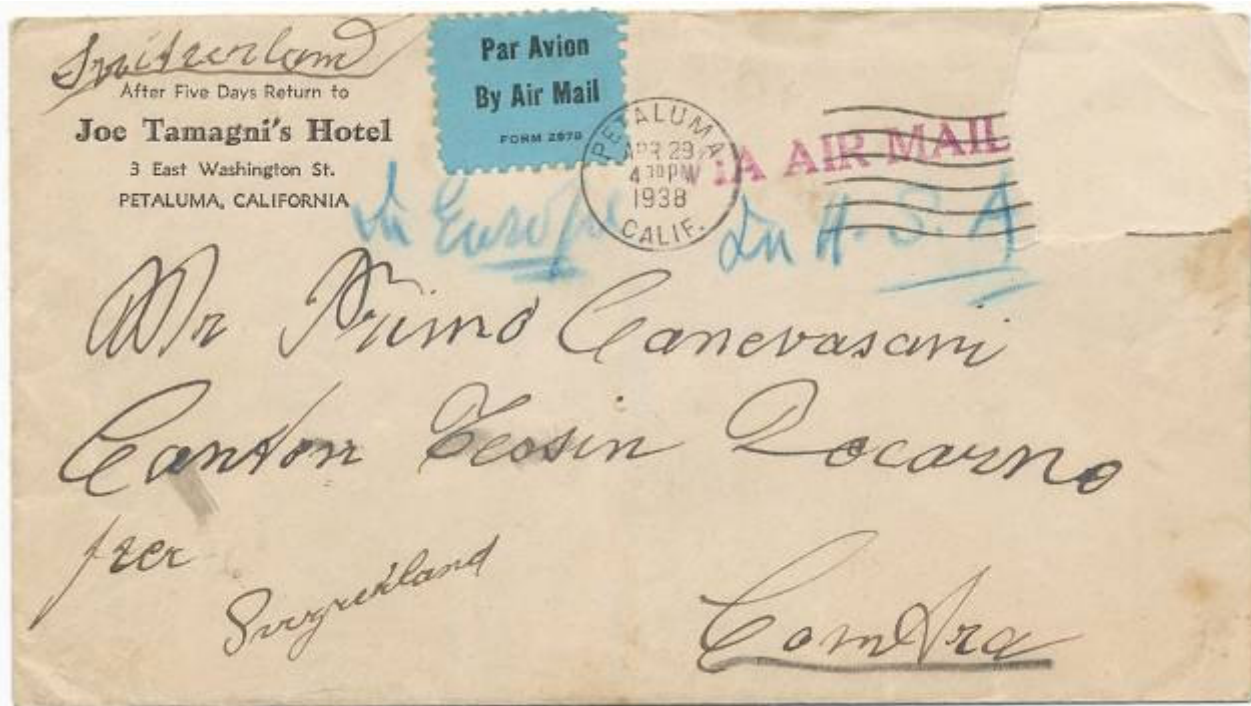 Switzerland
After Five Days Return to
Joe Tamagni's Hotel
3 East Washington St.
PETALUMA, CALIFORNIA
Par Avion
By Air Mail
FORM 2978
PETALUMA
APR 29
4 30 PM
1938
CALIF.
IA AIR MAIL
In Europe In U.S.A
Mr Primo Canevascini
Canton Tessin Locarno
per
Contra